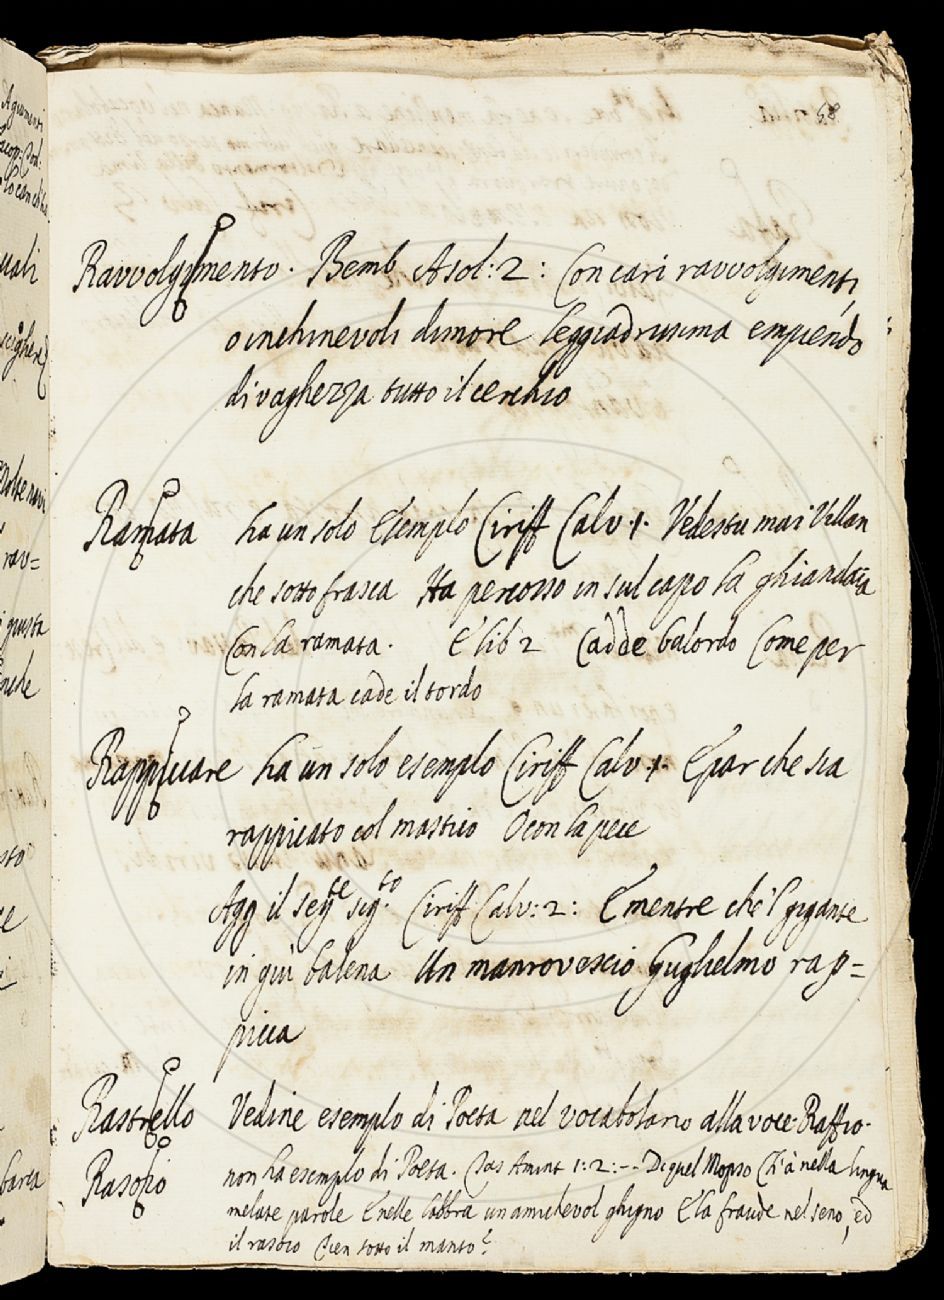 68
Ravvolgimento. Bemb Asol: 2: Con cari ravvolgimenti,
o inchinevoli dimore leggiadrissima empiendo
di vaghezza tutto il cerchio
Ramata ha un solo Esempio Ciriff Calv. 1. Vedestu mai Villan
che sotto frasca Ha percosso in sul capo la ghiandaia
Con la ramata. E lib 2 Cadde balordo Come per
la ramata cade il tordo
Rappiccare ha un solo esempio Ciriff Calv. 1. E par che sia
rappicato col mastico O con la pece
Agg il segte sig.to Ciriff Calv: 2: E mentre che'l gigante
in giù balena Un manrovescio Guglielmo rap=
picca
Rastrello Vedine esempio di Poeta nel vocabolario alla voce Raffio.
Rasoio non ha esempio di Poeta. Tas Amint 1: 2: -- Di quel Mopso Ch'à nella lingua
melate parole E nelle labbra un amichevol ghigno E la fraude nel seno, ed
il rasoio Tien sotto il manto
Agiamenti
uali
giusta